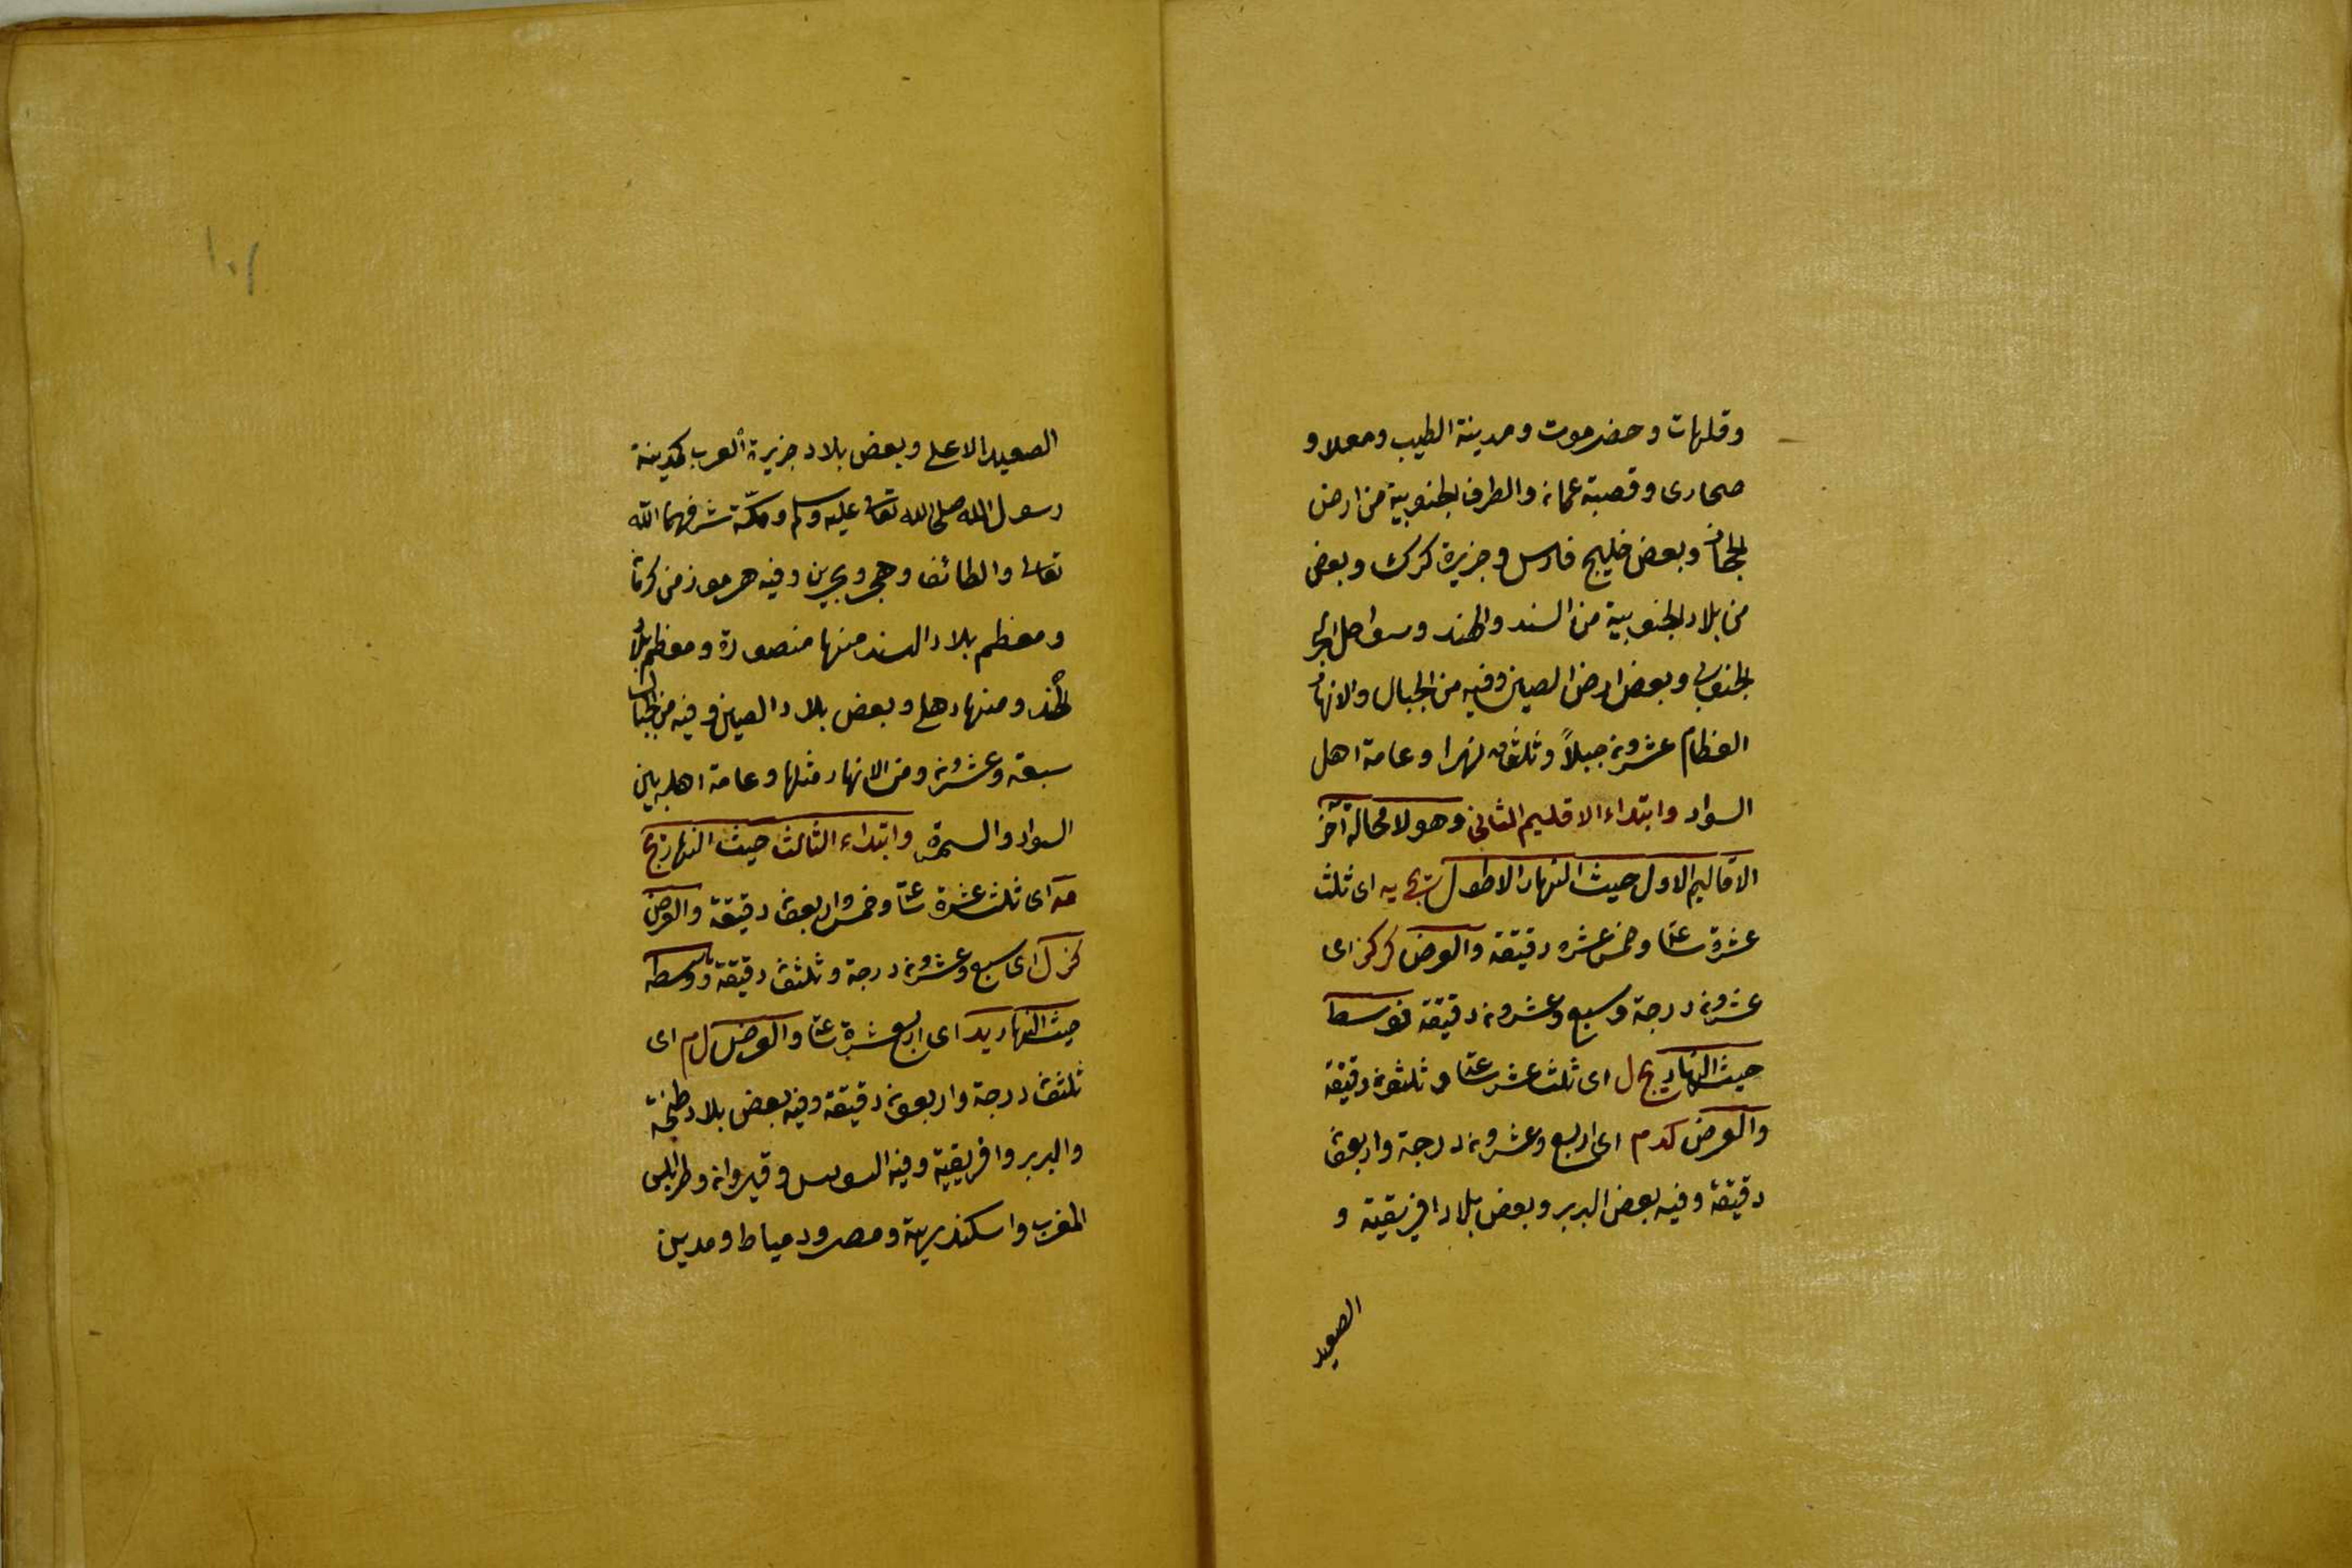 وقلهات وحضرموت ومدينة الطيب ومعلا و
صحارى وقصبة عمان والطرف الجنوبية من ارض
الحجاز وبعض خليج فارس وجزيرة كرك وبعض
من بلاد الجنوبية من السند والهند وسواحل البحر
الجنوبى وبعض ارض الصين وفيه من الجبال والانهار
العظام عشرون جبلاً وثلثون نهرا وعامة اهل
السواد وابتداء الاقليم الثانى وهو لا محالة آخر
الاقاليم الاول حيث النهار الاطول يج يه اى ثلث
عشرة ساعة وخمس عشره دقيقة والعرض ك كز اى
عشرون درجة وسبع وعشرون دقيقة توسط
حيث النهار يج ل اى ثلث عشر ساعة و ثلثون دقيقة
والعرض كد م اى اربع وعشرون درجة واربعون
دقيقة وفيه بعض البربر وبعض بلاد افريقية و
الصعيد
١٠٢
الصعيد الاعلى وبعض بلاد جزيرة العرب كمدينة
رسول الله صلى الله تعالى عليه وسلم ومكّة شرفهما الله
تعالى والطائف وهجر وبحرين وفيه هرموز من كرمان
ومعظم بلاد السند منها منصورة ومعظم بلاد
الهند ومنها دهلى وبعض بلاد الصين وفيه من الجبال
سبعة وعشرون ومن الانهار مثلها وعامة اهله بين
السواد والسمرة وابتداء الثالث حيث النهار يج
مه اى ثلث عشرة ساعة وخمس واربعون دقيقة والعرض
كز ل اى سبع وعشرون درجة وثلثون دقيقة وتوسطه
حيث النهار يد اى اربع عشرة ساعة والعرض ل م اى
ثلثون درجة واربعون دقيقة وفيه بعض بلاد طنجة
والبربر وافريقية وفيه السوس وقيروان وطرابلس
المغرب واسكندريهة ومصر ودمياط ومدين